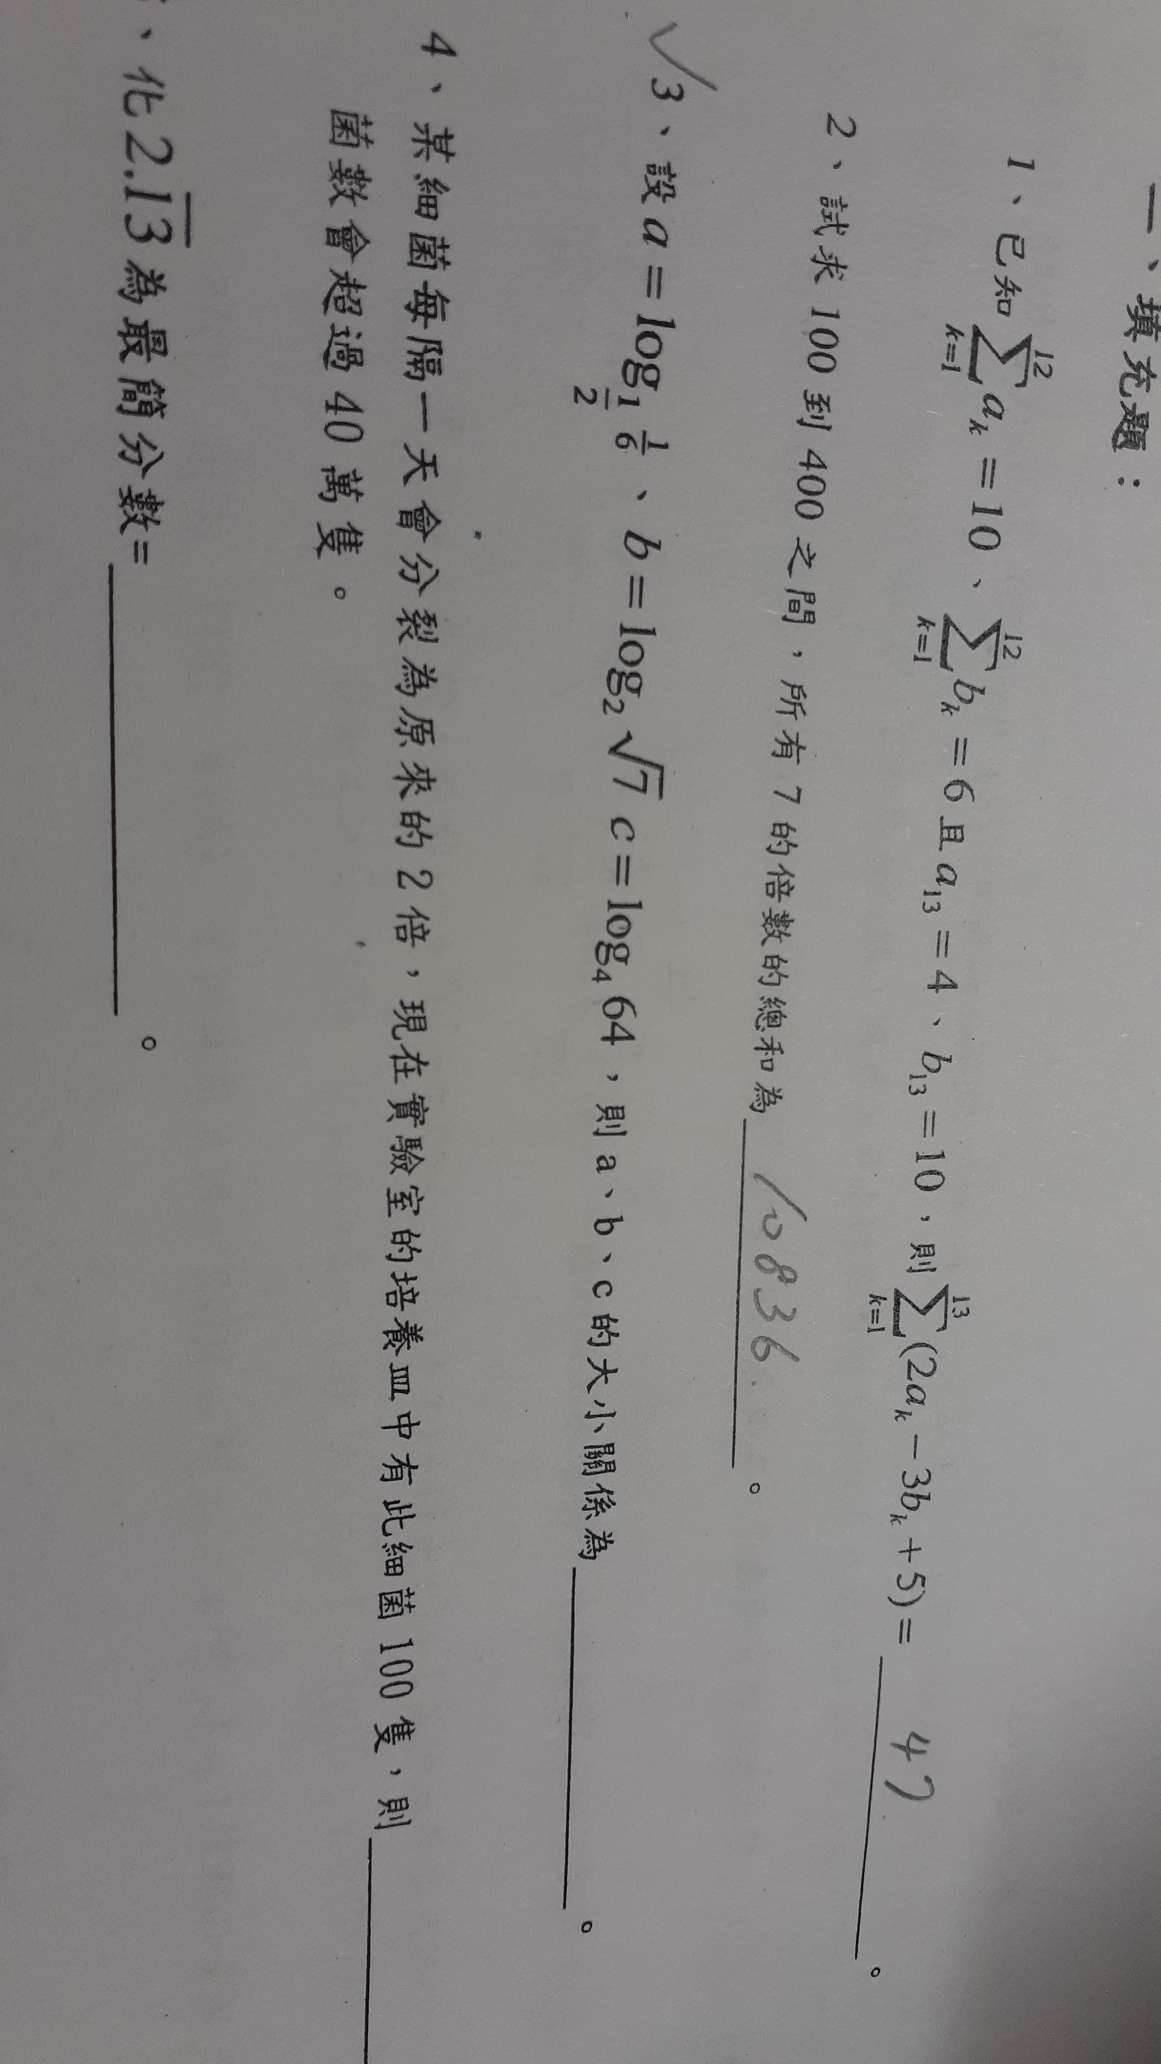 一、填充題：
1、已知 \sum_{k=1}^{12} a_k = 10、\sum_{k=1}^{12} b_k = 6 且 a_{13} = 4、b_{13} = 10，則 \sum_{k=1}^{13} (2a_k − 3b_k + 5) = 47。
2、試求 100 到 400 之間，所有 7 的倍數的總和為 10836.。
√3、設 a = \log_{\frac{1}{2}} \frac{1}{6}、b = \log_2 \sqrt{7} c = \log_4 64，則 a、b、c 的大小關係為。
4、某細菌每隔一天會分裂為原來的 2 倍，現在實驗室的培養皿中有此細菌 100 隻，則
菌數會超過 40 萬隻。
、化 2.\overline{13} 為最簡分數=。